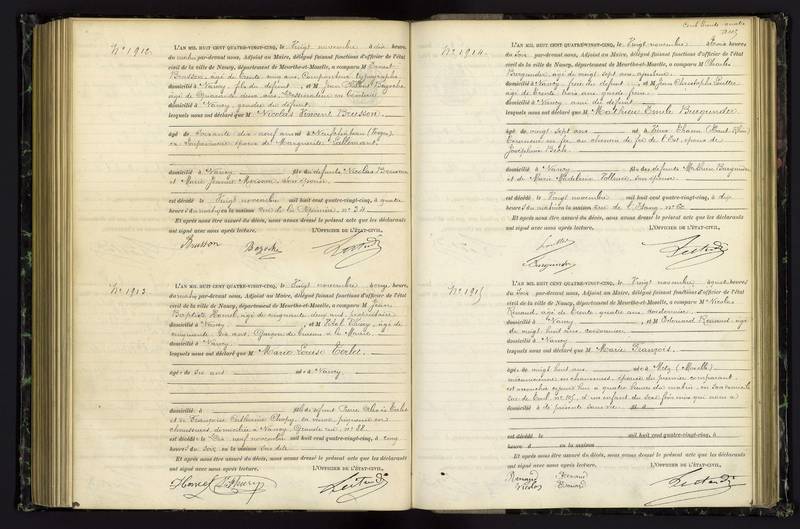 N° 1912.
L'AN MIL HUIT CENT QUATRE-VINGT-CINQ, le Vingt novembre à dix heures
du matin par-devant nous, Adjoint au Maire, délégué faisant fonctions d'officier de l'état
civil de la ville de Nancy, département de Meurthe-et-Moselle, a comparu M Ernest
Brusson, âgé de trente cinq ans, Compositeur typographe
domicilié à Nancy, fils du défunt, et M Jean
âgé de quarante deux ans,
domicilié à Nancy, gendre du défunt
lesquels nous ont déclaré que M Nicolas Vincent Brusson
âgé de soixante dix neuf ans né à Neufchâteau (Vosges)
ex Imprimeur époux de Marguerite Lallemant
domicilié à Nancy fils des défunts Nicolas Brusson
et Marie Jeanne son épouse
est décédé le Vingt novembre mil huit cent quatre-vingt-cinq, à quatre
heures du matin en la maison rue de la Pépinière, n° 34
Et après nous être assuré du décès, nous avons dressé le présent acte que les déclarants
ont signé avec nous après lecture. L'OFFICIER DE L'ÉTAT-CIVIL,
Brusson
N° 1913.
L'AN MIL HUIT CENT QUATRE-VINGT-CINQ, le Vingt novembre à onze heures
du matin par-devant nous, Adjoint au Maire, délégué faisant fonctions d'officier de l'état
civil de la ville de Nancy, département de Meurthe-et-Moselle, a comparu M Jean
Baptiste Hamel, âgé de cinquante deux ans, propriétaire
domicilié à Nancy, et M Thiéry, âgé de
cinquante six ans, Garçon de bureau à la Mairie
domicilié à Nancy
lesquels nous ont déclaré que M Marie Louise Terlet
âgée de six ans née à Nancy
domicilié à fille de défunt Pierre Terlet
et de Françoise Catherine sa veuve, piqueuse en
chaussures, domiciliée à Nancy, Grande rue, n° 88
est décédée le Dix neuf novembre mil huit cent quatre-vingt-cinq, à cinq
heures du soir en la maison sus dite
Et après nous être assuré du décès, nous avons dressé le présent acte que les déclarants
ont signé avec nous après lecture. L'OFFICIER DE L'ÉTAT-CIVIL,
Hamel Thiéry
Cent trente quatre
N° 1914.
L'AN MIL HUIT CENT QUATRE-VINGT-CINQ, le Vingt novembre à trois heures
du soir par-devant nous, Adjoint au Maire, délégué faisant fonctions d'officier de l'état
civil de la ville de Nancy, département de Meurthe-et-Moselle, a comparu M Charles
Burgunder, âgé de vingt sept ans,
domicilié à Nancy, frère du défunt, et M Jean Christophe
âgé de trente trois ans, garde frein
domicilié à Nancy, ami du défunt
lesquels nous ont déclaré que M Mathieu Emile Burgunder
âgé de vingt sept ans né à Vieux Thann (Haut Rhin)
au chemin de fer de l'Est époux de
Joséphine
domicilié à Nancy fils des défunts Mathieu Burgunder
et de Marie Madeleine son épouse
est décédé le Vingt novembre mil huit cent quatre-vingt-cinq, à dix
heures du matin en la maison rue de l'Etang, n° 60
Et après nous être assuré du décès, nous avons dressé le présent acte que les déclarants
ont signé avec nous après lecture. L'OFFICIER DE L'ÉTAT-CIVIL,
Burgunder
N° 1915
L'AN MIL HUIT CENT QUATRE-VINGT-CINQ, le Vingt novembre à quatre heures
du soir par-devant nous, Adjoint au Maire, délégué faisant fonctions d'officier de l'état
civil de la ville de Nancy, département de Meurthe-et-Moselle, a comparu M Nicolas
Renaud, âgé de trente quatre ans, cordonnier
domicilié à Nancy, et M Edouard Renaud, âgé
de vingt huit ans, cordonnier
domicilié à Nancy
lesquels nous ont déclaré que M Marie François
âgée de vingt huit ans née à Metz (Moselle)
mécanicienne en chaussures, épouse du premier comparant
est accouchée aujourd'hui à quatre heures du matin, en sa demeure
rue de Toul, n° 105, d'un enfant du sexe féminin qui nous a
été présenté sans vie
domicilié à
est décédé le mil huit cent quatre-vingt-cinq, à
heures en la maison
Et après nous être assuré du décès, nous avons dressé le présent acte que les déclarants
ont signé avec nous après lecture. L'OFFICIER DE L'ÉTAT-CIVIL,
Renaud Renaud
Nicolas Edouard